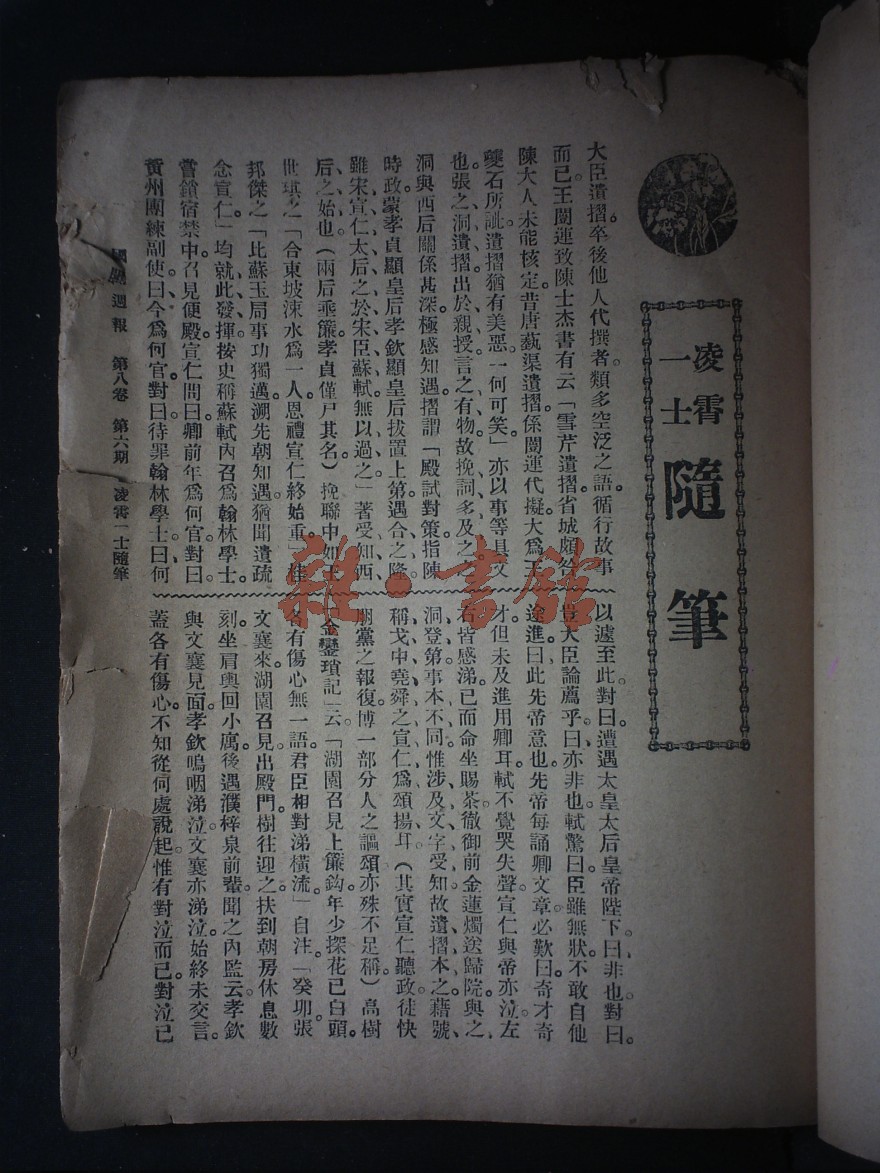 凌霄
一士
隨筆
大臣遺摺。卒後他人代撰者。類多空泛之語。循行故事
而已。王闓運致陳士杰書有云「雪芹遺摺。省城頗
陳大人未能核定。昔唐蓺渠遺摺。係闓運代擬。大爲王
夔石所訿。遺摺猶有美惡。一何可笑」亦以事等具文
也。張之洞遺摺出於親授。言之有物。故挽詞多及之。之
洞與西后關係甚深。極感知遇。摺謂「殿試對策。指陳
時政。蒙孝貞顯皇后孝欽顯皇后拔置上第。遇合之隆
雖宋宣仁太后之於宋臣蘇軾無以過之」著受知西
后之始也（兩后垂簾孝貞僅尸其名）挽聯中如王
世琪之「合東坡涑水爲一人。恩禮宣仁終始重」
邦傑之「比蘇玉局事功獨邁。溯先朝知遇。猶聞遺疏
念宣仁」均就此發揮。按史稱蘇軾內召爲翰林學士。
嘗鎖宿禁中。召見便殿。宣仁問曰。卿前年爲何官。對曰
黃州團練副使。曰今爲何官。對曰。待罪翰林學士。曰何
以遽至此。對曰。遭遇太皇太后皇帝陛下。曰。非也。對曰。
豈大臣論薦乎。曰亦非也。軾驚曰。臣雖無狀。不敢自他
途進。曰此先帝意也。先帝每誦卿文章。必歎曰。奇才奇
才。但未及進用卿耳。軾不覺哭失聲。宣仁與帝亦泣。左
右皆感涕。已而命坐賜茶。徹御前金蓮燭送歸院。與之
洞登第事本不同。惟涉及文字受知。故遺摺本之。藉號
稱女中堯舜之宣仁爲頌揚耳（其實宣仁聽政。徒快
朋黨之報復。博一部分人之謳頌。亦殊不足稱）高樹
「金鑾瑣記」云。「湖園召見上簾鈎。年少探花已白頭。
各有傷心無一語。君臣相對涕橫流。」自注。「癸卯張
文襄來湖園召見。出殿門。樹往迎之。扶到朝房休息數
刻。坐肩輿回小寓。後遇濮梓泉前輩。聞之內監云。孝欽
與文襄見面。孝欽嗚咽涕泣。文襄亦涕泣。始終未交言。
蓋各有傷心。不知從何處說起。惟有對泣而已。對泣已
國聞週報　第八卷　第六期　凌霄一士隨筆
雜·書館